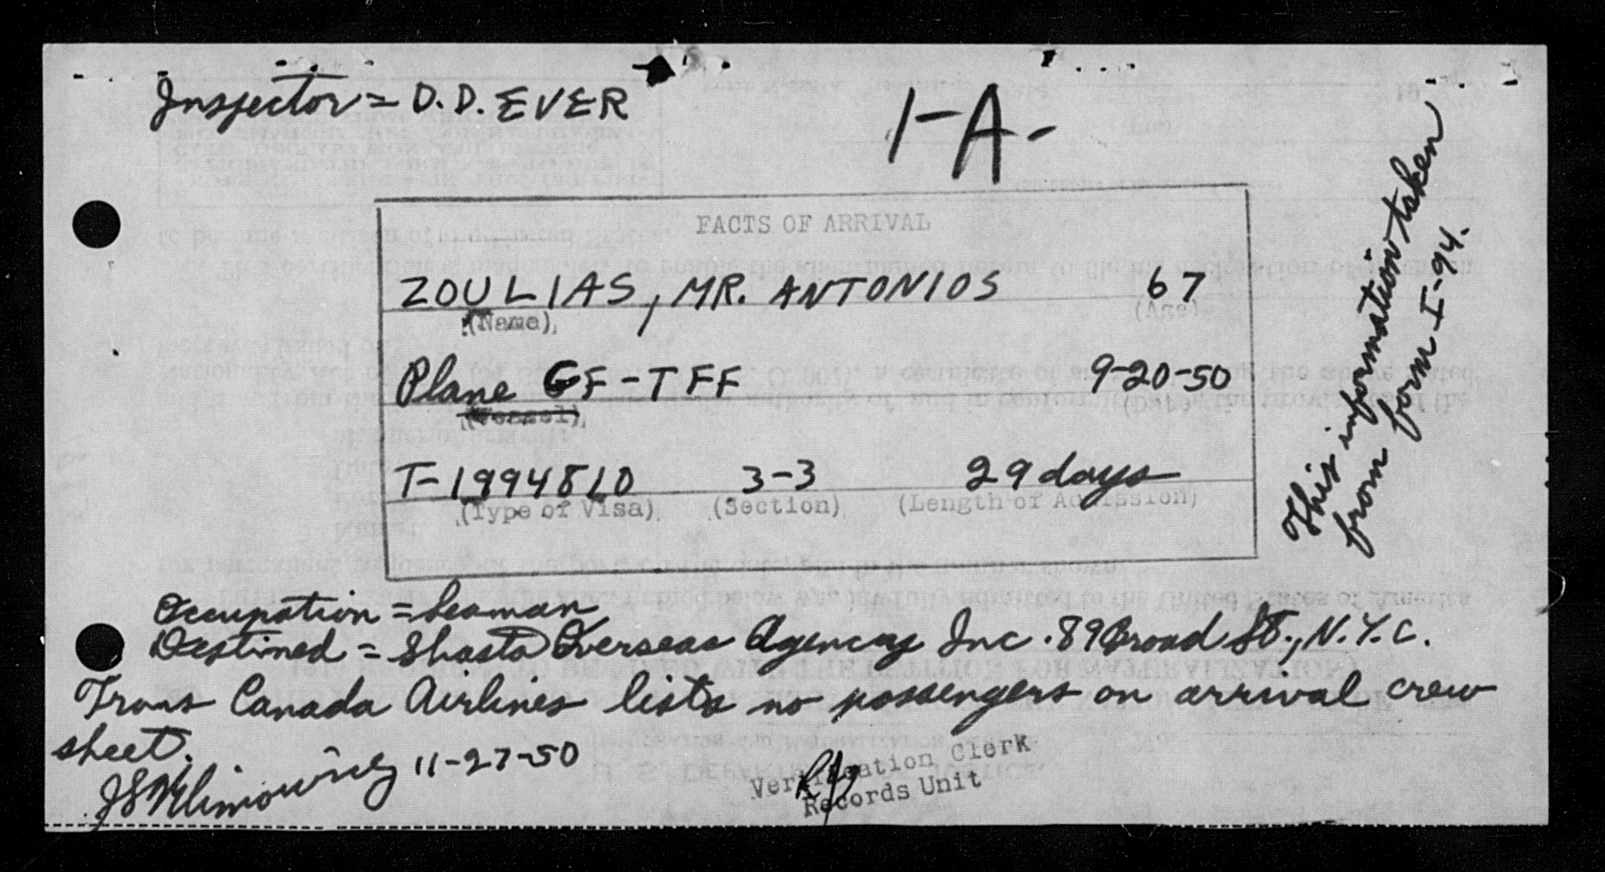 Inspector = D.D. EVER
1-A-
FACTS OF ARRIVAL
ZOULIAS, MR. ANTONIOS 67
(Name) (Age)
Plane GF-TFF 9-20-50
(Vessel) (Date)
T-1994810 3-3 29 days
(Type of Visa) (Section) (Length of Admission)
This information taken
from form I-94.
Occupation = Seaman
Destined = Shasta Overseas Agency Inc. 89 Broad St., N.Y.C.
Trans Canada Airlines lists no passengers on arrival crew
sheet.
11-27-50
Verification Clerk
Records Unit